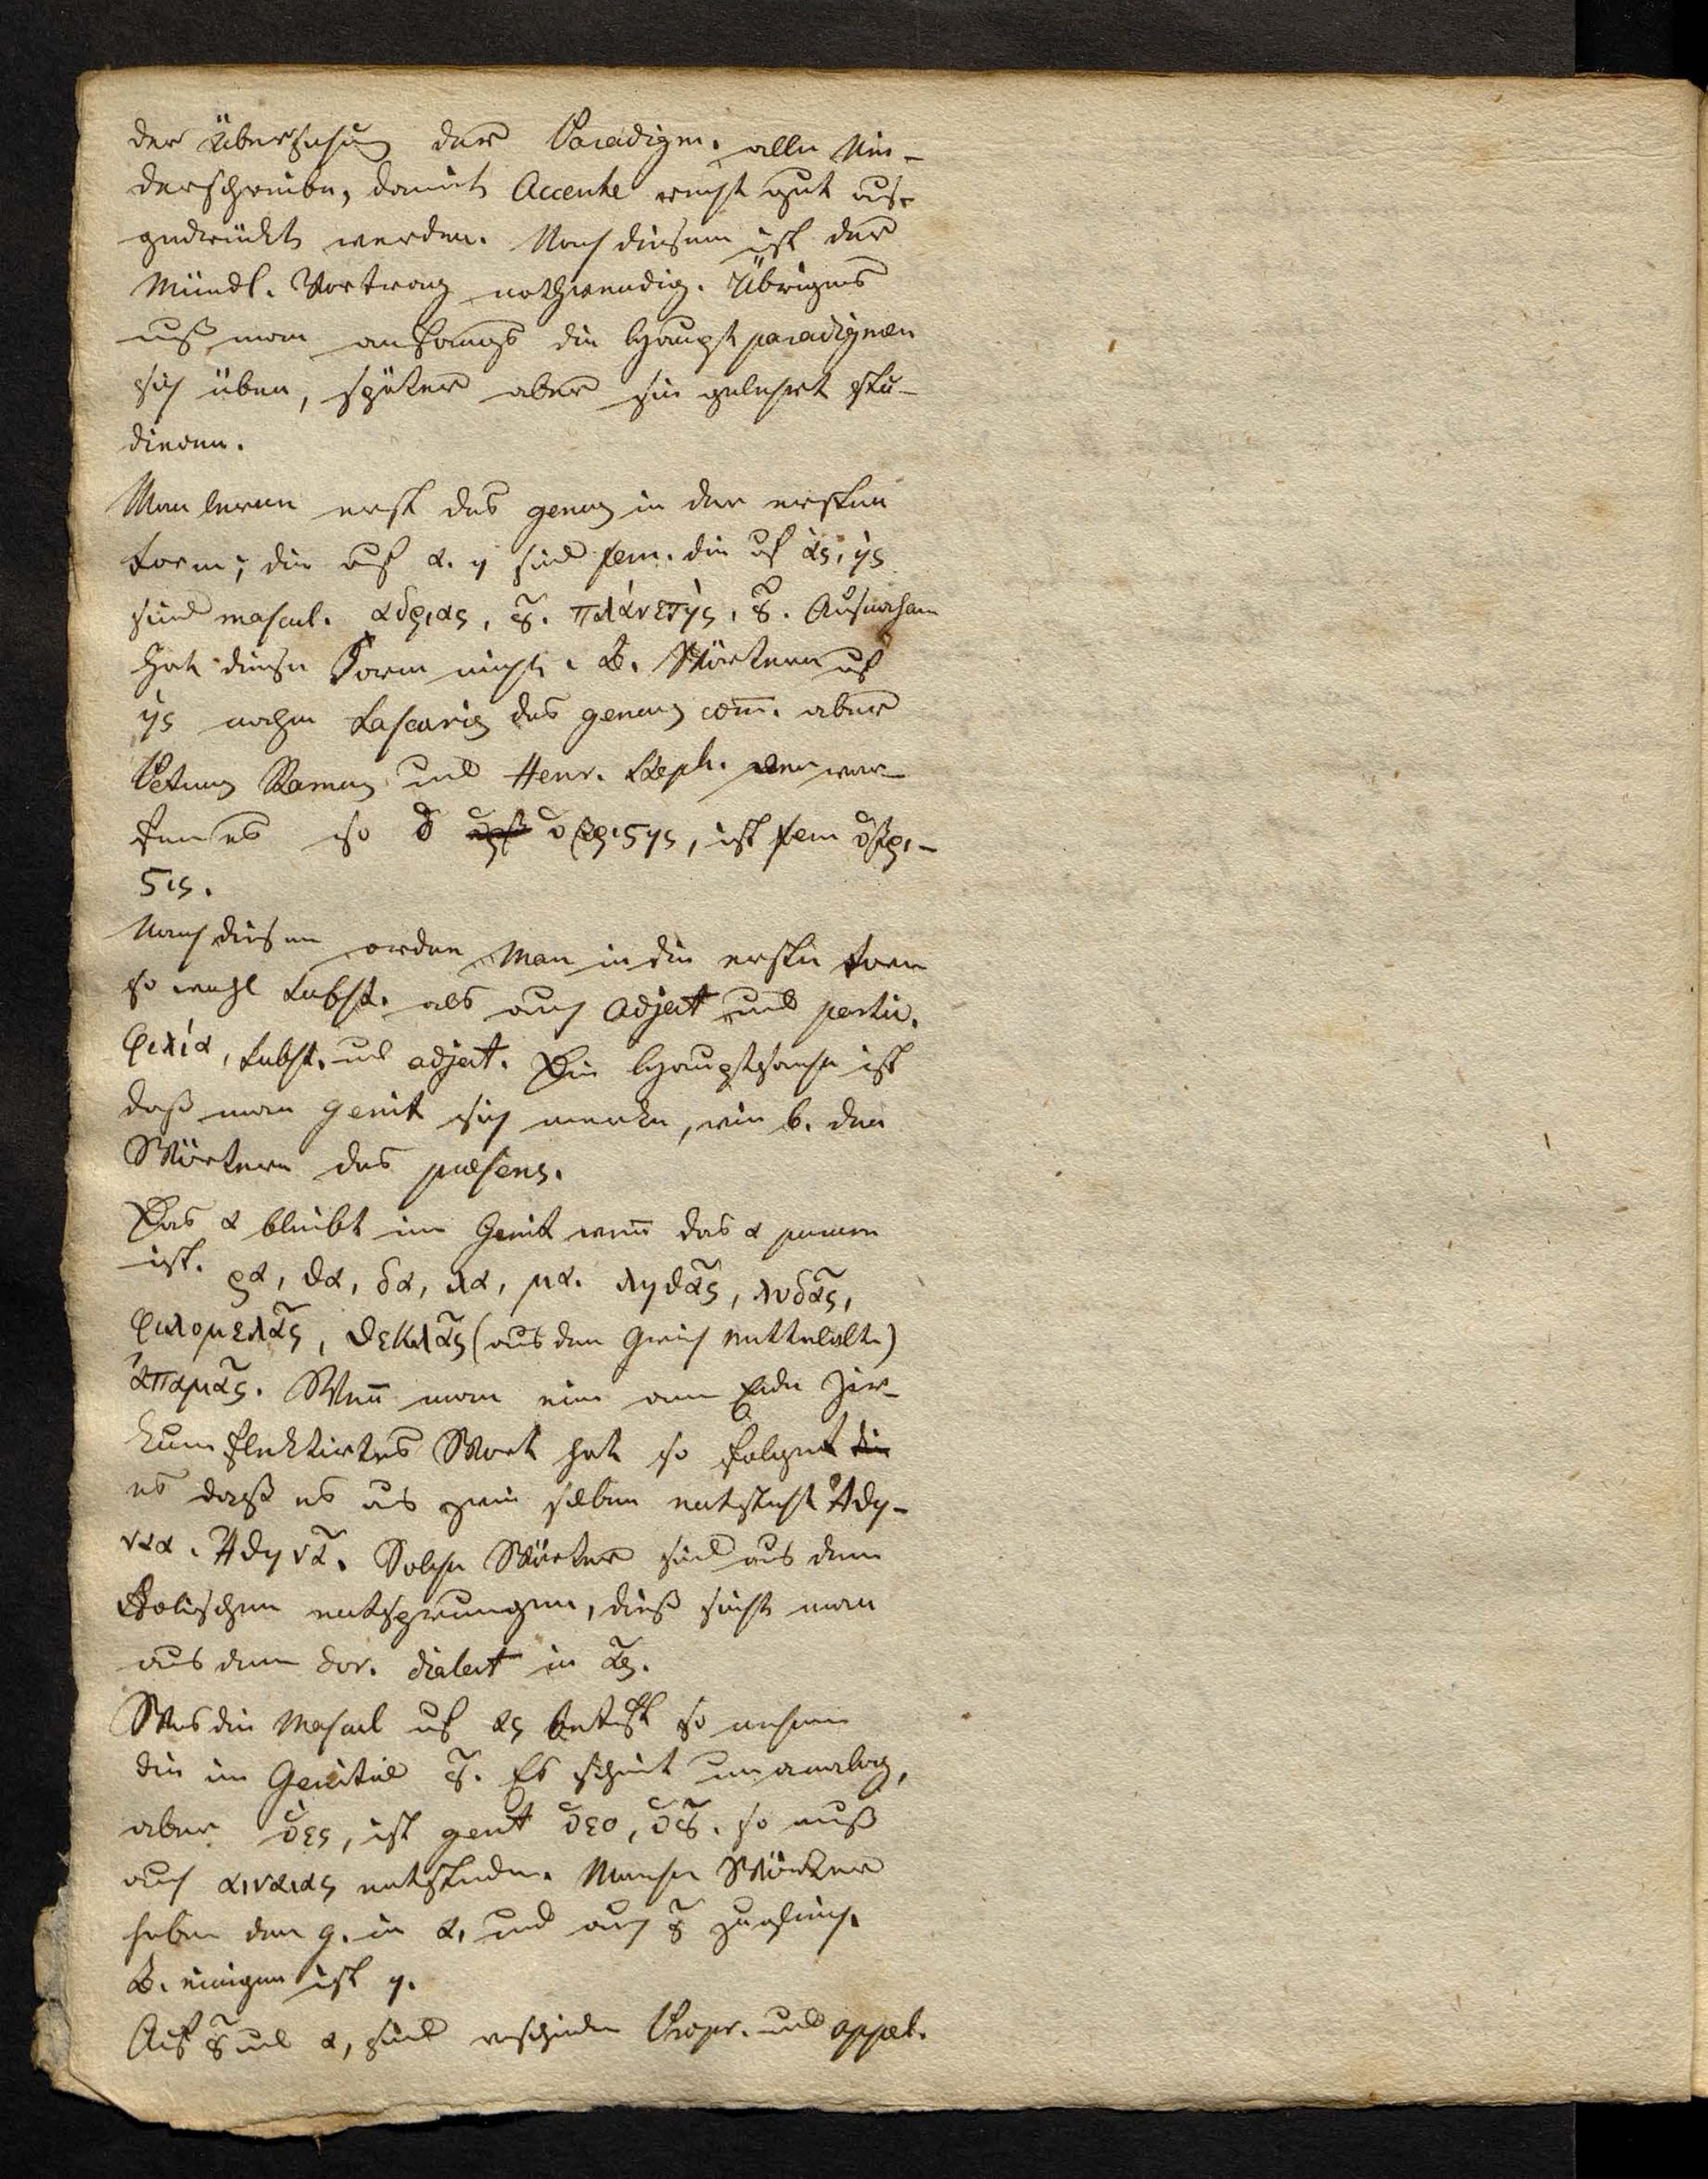 der Übersehung der Paradigm. alle Nie-
derschreibe, damit Accente recht gut aus-
gedrückt werden. Nach diesem ist der
Mündl. Vortrag nothwendig. Übrigens
muß man anfangs die Hauptparadigmen
sich üben, später aber sie gelehrt stu-
dieren.
Man lerne erst das genus in der ersten
Form; die auf α. η sind fem. die auf ας, ης
sind mascul. αδριας, ȣ͂. πλάνετης, ȣ͂. Ausnahm
hat diese Form nicht. B. Wörtern auf
ης nahm Lascaris das genus com̄. aber
Petrus Ramus und Henr. Steph. verwar-
fen es so ὁ ὑβριϛης, ist fem ὑβρι-
ϛις.
Nach diesem orden Man in die erste Form
so wohl Subst. als auch Adject und partic.
φιλία, Subst. und adject. Die Hauptsache ist
daß man genit sich merke, wie b. den
Wörtern das præsens.
Das α bleibt im Genit wen̄ das α purum
ist. ρα, θα, δα, λα, μα. ληθᾶς, λυδᾶς,
φιλομελᾶς, θεκλᾶς (aus dem Griech Mittelalte)
ἁπαμᾶς. Wen̄ man ein am Ende zir-
kumflektirtes Wort hat so folget
es daß es aus zwei selben entsteht Ἀθη-
ναα. Ἀθηνᾶ. Solche Wörter sind aus dem
Äolischen entsprungen, dieß sieht man
aus dem dor. dialect in ᾶς.
Was die Mascul auf ας betrift so nehmen
die im Genitiv ȣ͂. Es scheint unanalog,
aber ὑες, ist genit ὑεο, ὑȣ͂. so muß
auch αινειας entstehen. Manche Wörter
haben den g. in α, und auch ȣ͂ zugleich.
B. einigen ist η.
Auf ȣ͂ und α, sind verschieden Propr. und appel.